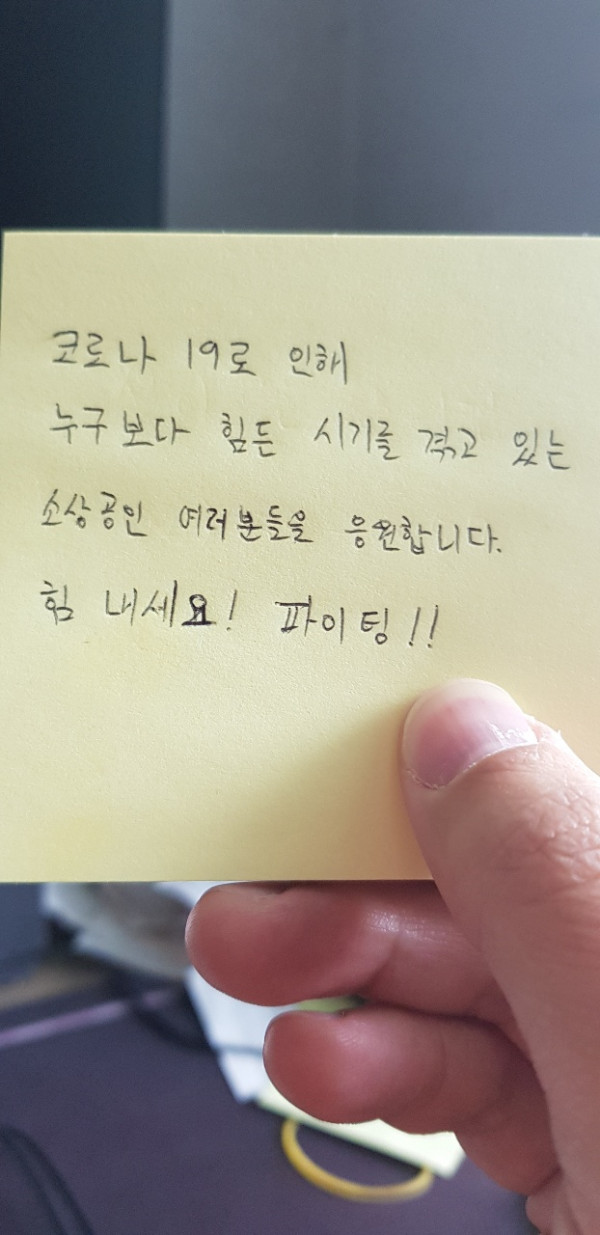 코로나 19로 인해
누구보다 힘든 시기를 겪고 있는
소상공인 여러분들을 응원합니다.
힘 내세요! 파이팅!!